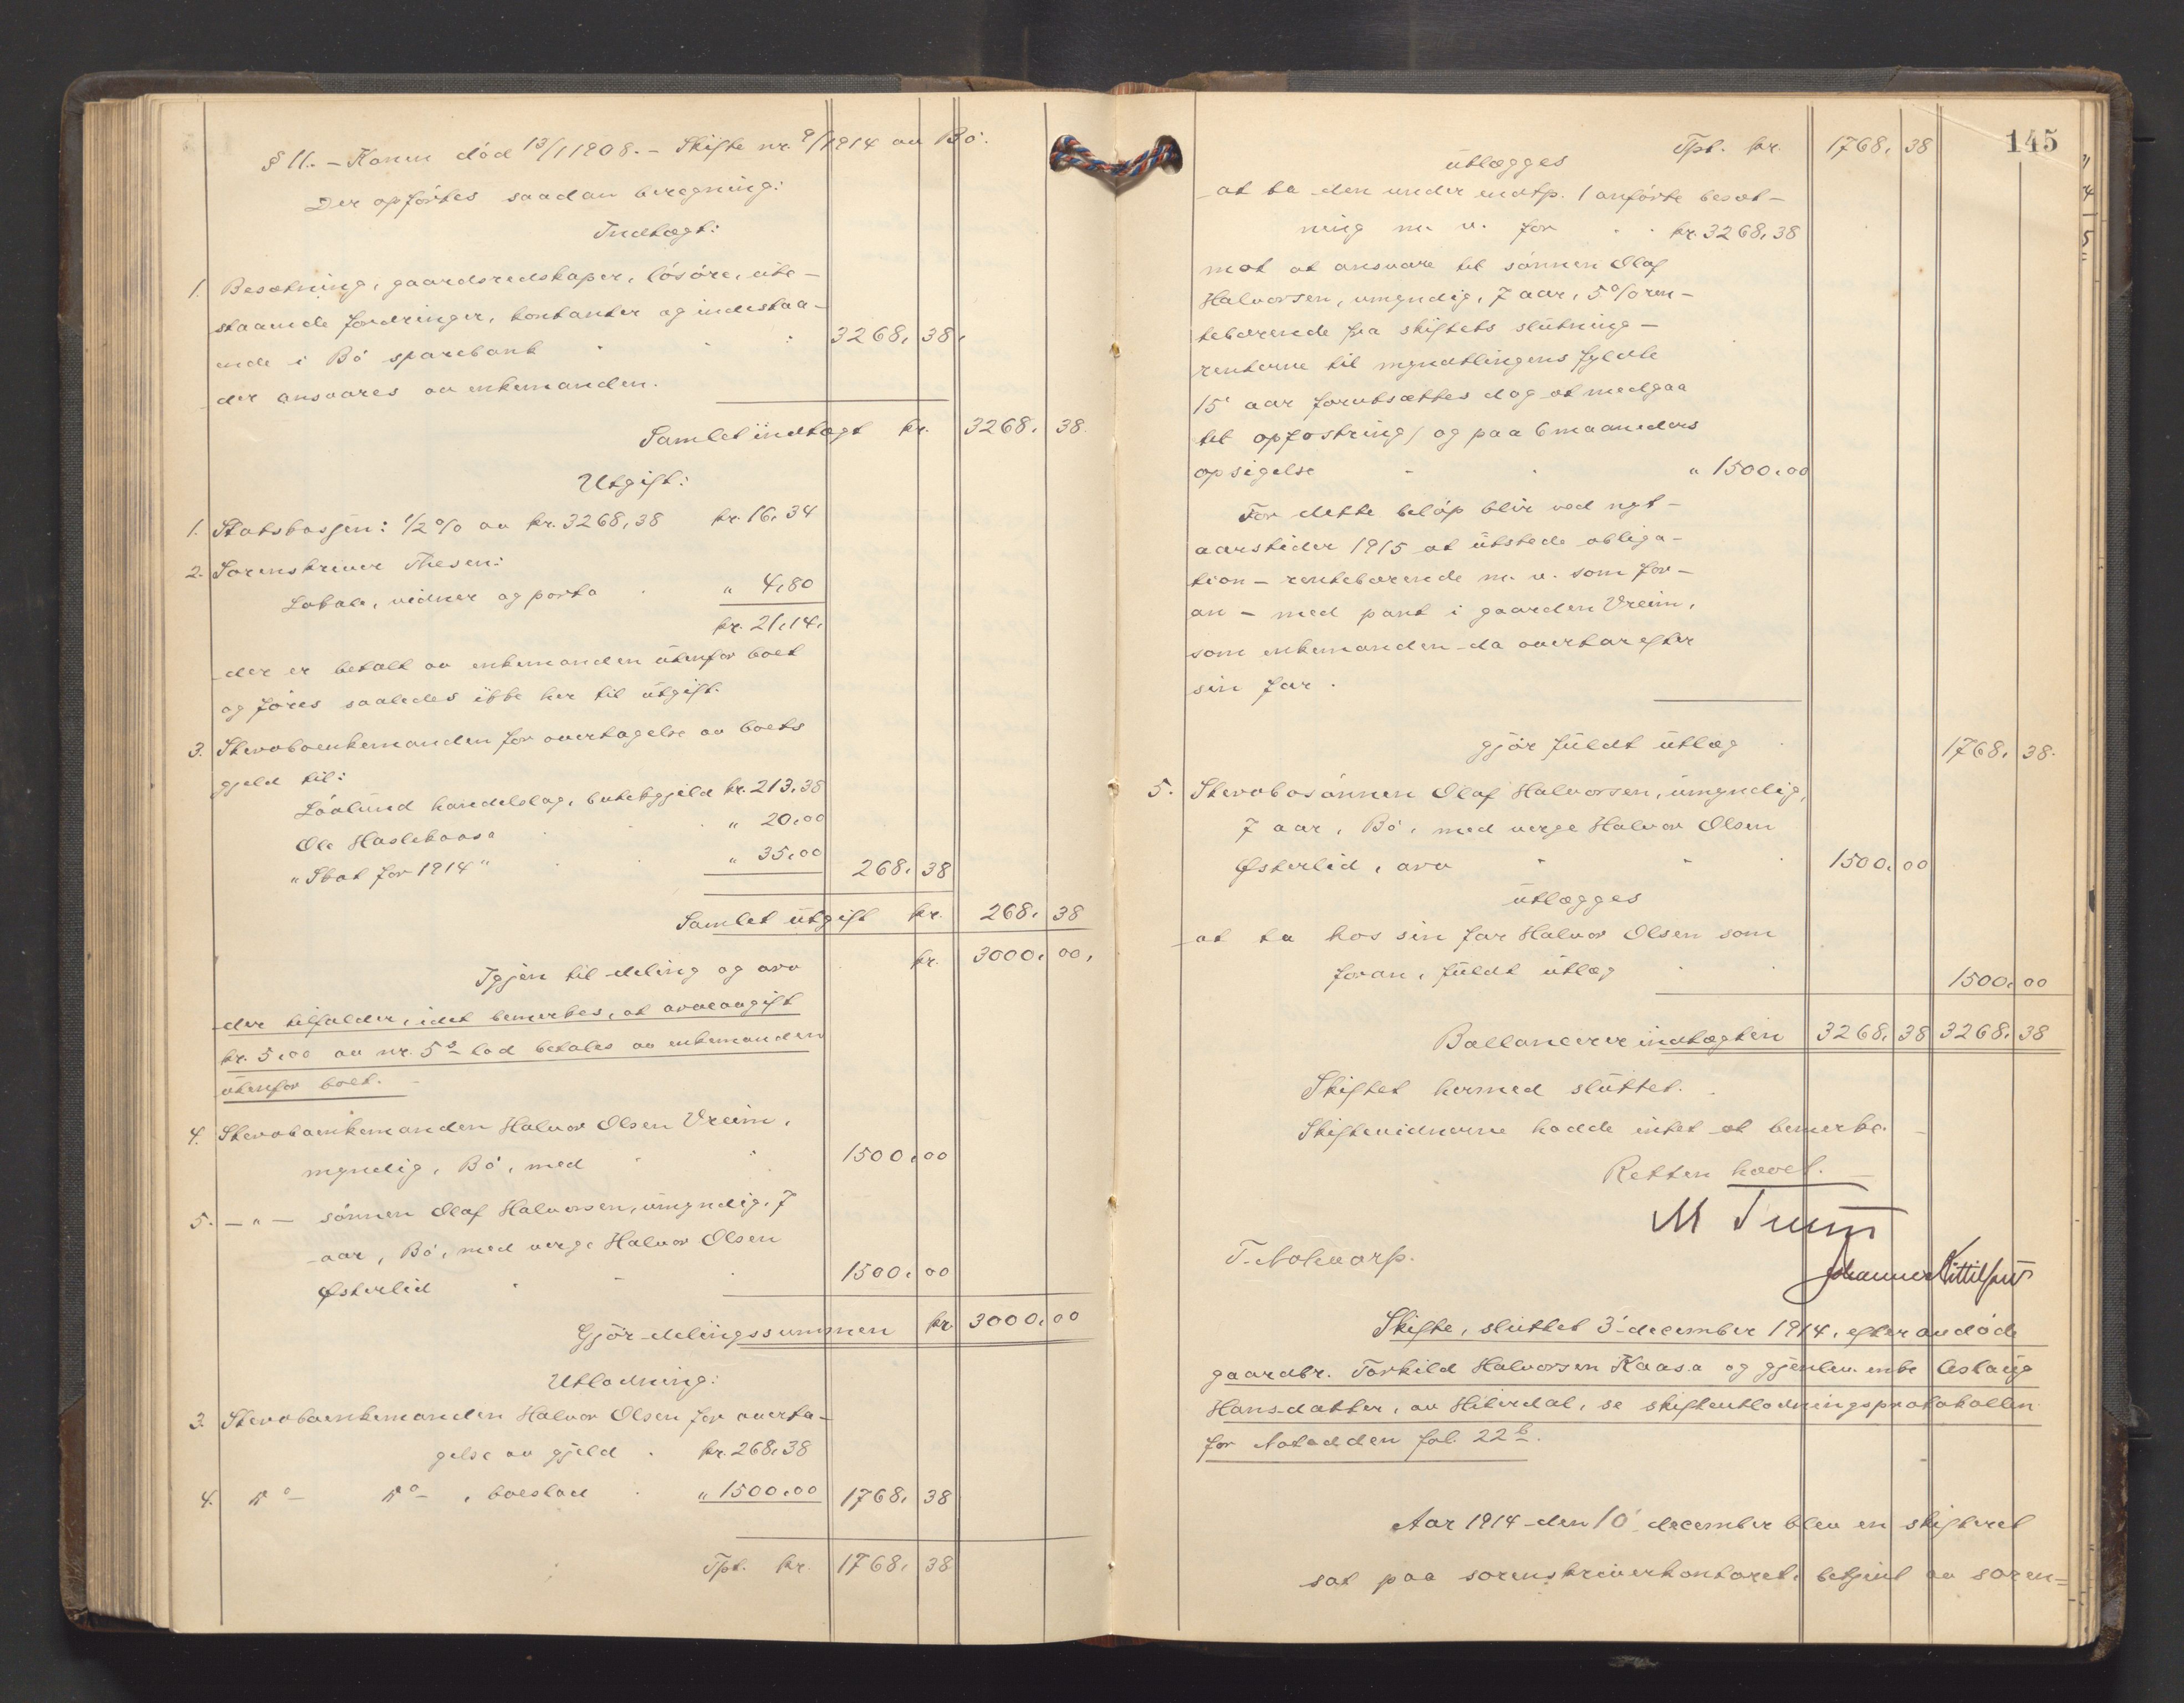 § 11. – Konen död 13/1 1908. – Skifte nr. 9/1914 av Bö.
Der opförtes saadan beregning:
Indtægt:
1. Besætning, gaardsredskaper, lösöre, ute-
staaende fordringer, kontanter og indestaa-
ende i Bö sparebank 3268, 38.
der ansvares av enkemanden.
Samlet indtægt kr. 3268, 38.
Utgift:
1. Statskassen: 1/2 % av kr. 3268,38 kr. 16,34
2. Sorenskriver Thesen:
Lokale, vidner og porto " 4,80
kr. 21,14.
der er betalt av enkemanden utenfor boet
og föres saaledes ikke her til utgift.
3. Stervboenkemanden for overtagelse av boets
gjeld til:
handelslag, butikgjeld kr. 213,38
Ole Haslekaasa " 20,00
"Skat for 1914" " 35,00 268, 38
Samlet utgift kr. 268, 38
Igjen til deling og arv kr. 3000, 00,
der tilfalder, idet bemerkes, at arveavgift
kr. 5,00 av nr. 5s lod betales av enkemanden
utenfor boet. –
4. Stervboenkemanden Halvor Olsen Vreim,
myndig, Bö, med 1500,00
5. – " – sönnen Olaf Halvorsen, umyndig, 7
aar, Bö, med verge Halvor Olsen
Østerlid 1500,00
Gjör delingssummen kr. 3000,00
Utlodning:
3. Stervboenkemanden Halvor Olsen for overta-
gelse av gjeld kr. 268,38
4. do do, boeslod " 1500,00 1768, 38
Tpt. kr. 1768, 38
145
Tpt. kr. 1768, 38
utlægges
at ta den under indtp. 1 anförte besæt-
ning m. v. for kr. 3268,38
mot at ansvare til sönnen Olaf
Halvorsen, umyndig, 7 aar, 5 % ren-
tebærende fra skiftets slutning –
renterne til myndtlingens fyldte
15 aar forutsættes dog at medgaa
til opfostring) og paa 6 maaneders
opsigelse " 1500,00
For dette belöp blir ved nyt-
aarstider 1915 at utstede obliga-
tion – rentebærende m. v. som for-
an – med pant i gaarden Vreim,
som enkemanden da overtar efter
sin far.
gjör fuldt utlæg 1768, 38.
5. Stervbosönnen Olaf Halvorsen, umyndig,
7 aar, Bö, med verge Halvor Olsen
Østerlid, arv 1500,00
utlægges
at ta hos sin far Halvor Olsen som
foran, fuldt utlæg 1500,00
Ballancerer indtægten 3268, 38 3268, 38
Skiftet hermed sluttet.
Skiftevidnerne hadde intet at bemerke. –
Retten hævet. –
Johannes Kittilsen
Skifte, sluttet 3' december 1914, efter avdöde
gaardbr. Torkild Halvorsen Kaasa og gjenlev. enke Aslaug
Hansdatter, av Hiterdal, se skifteutlodningsprotokollen
for Notodden fol. 22 b.
Aar 1914 den 10' december blev en skifteret
sat paa sorenskriverkontoret, betjent av soren=